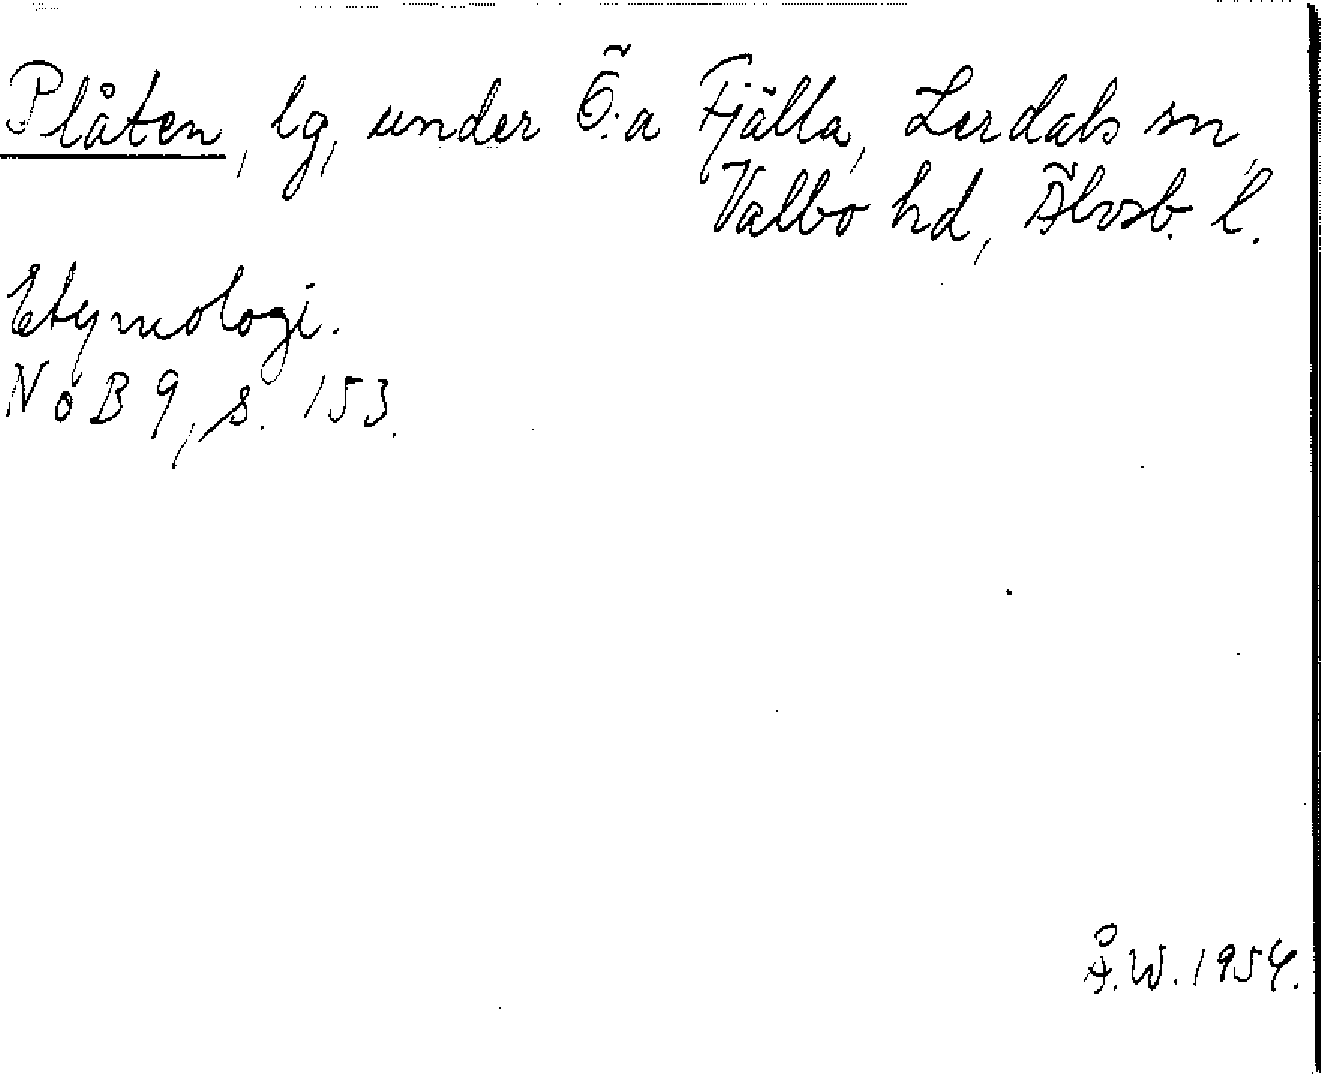 Plåten, lg, under Ö:a Fjälla, Lerdals sn,
Valbo hd, Älvsb. l.
Etymologi.
NoB 9, s. 153.
Å.W. 1954.